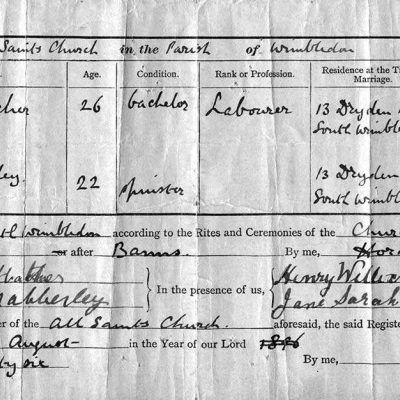 Saints Church in the Parish of Wimbledon
Age. Condition. Rank or Profession. Residence at the T
Marriage.
cher 26 bachelor Labourer 13 Dryden
South Wimble
ley. 22 spinster 13 Dryden
South Wimble
Wimbledon according to the Rites and Ceremonies of the Chur
or after Banns. By me, Hor
Hatcher
abberley
In the presence of us,
Henry Willia
Jane Sarah
er of the All Saints Church. aforesaid, the said Regist
August in the Year of our Lord 1896
ty six By me,